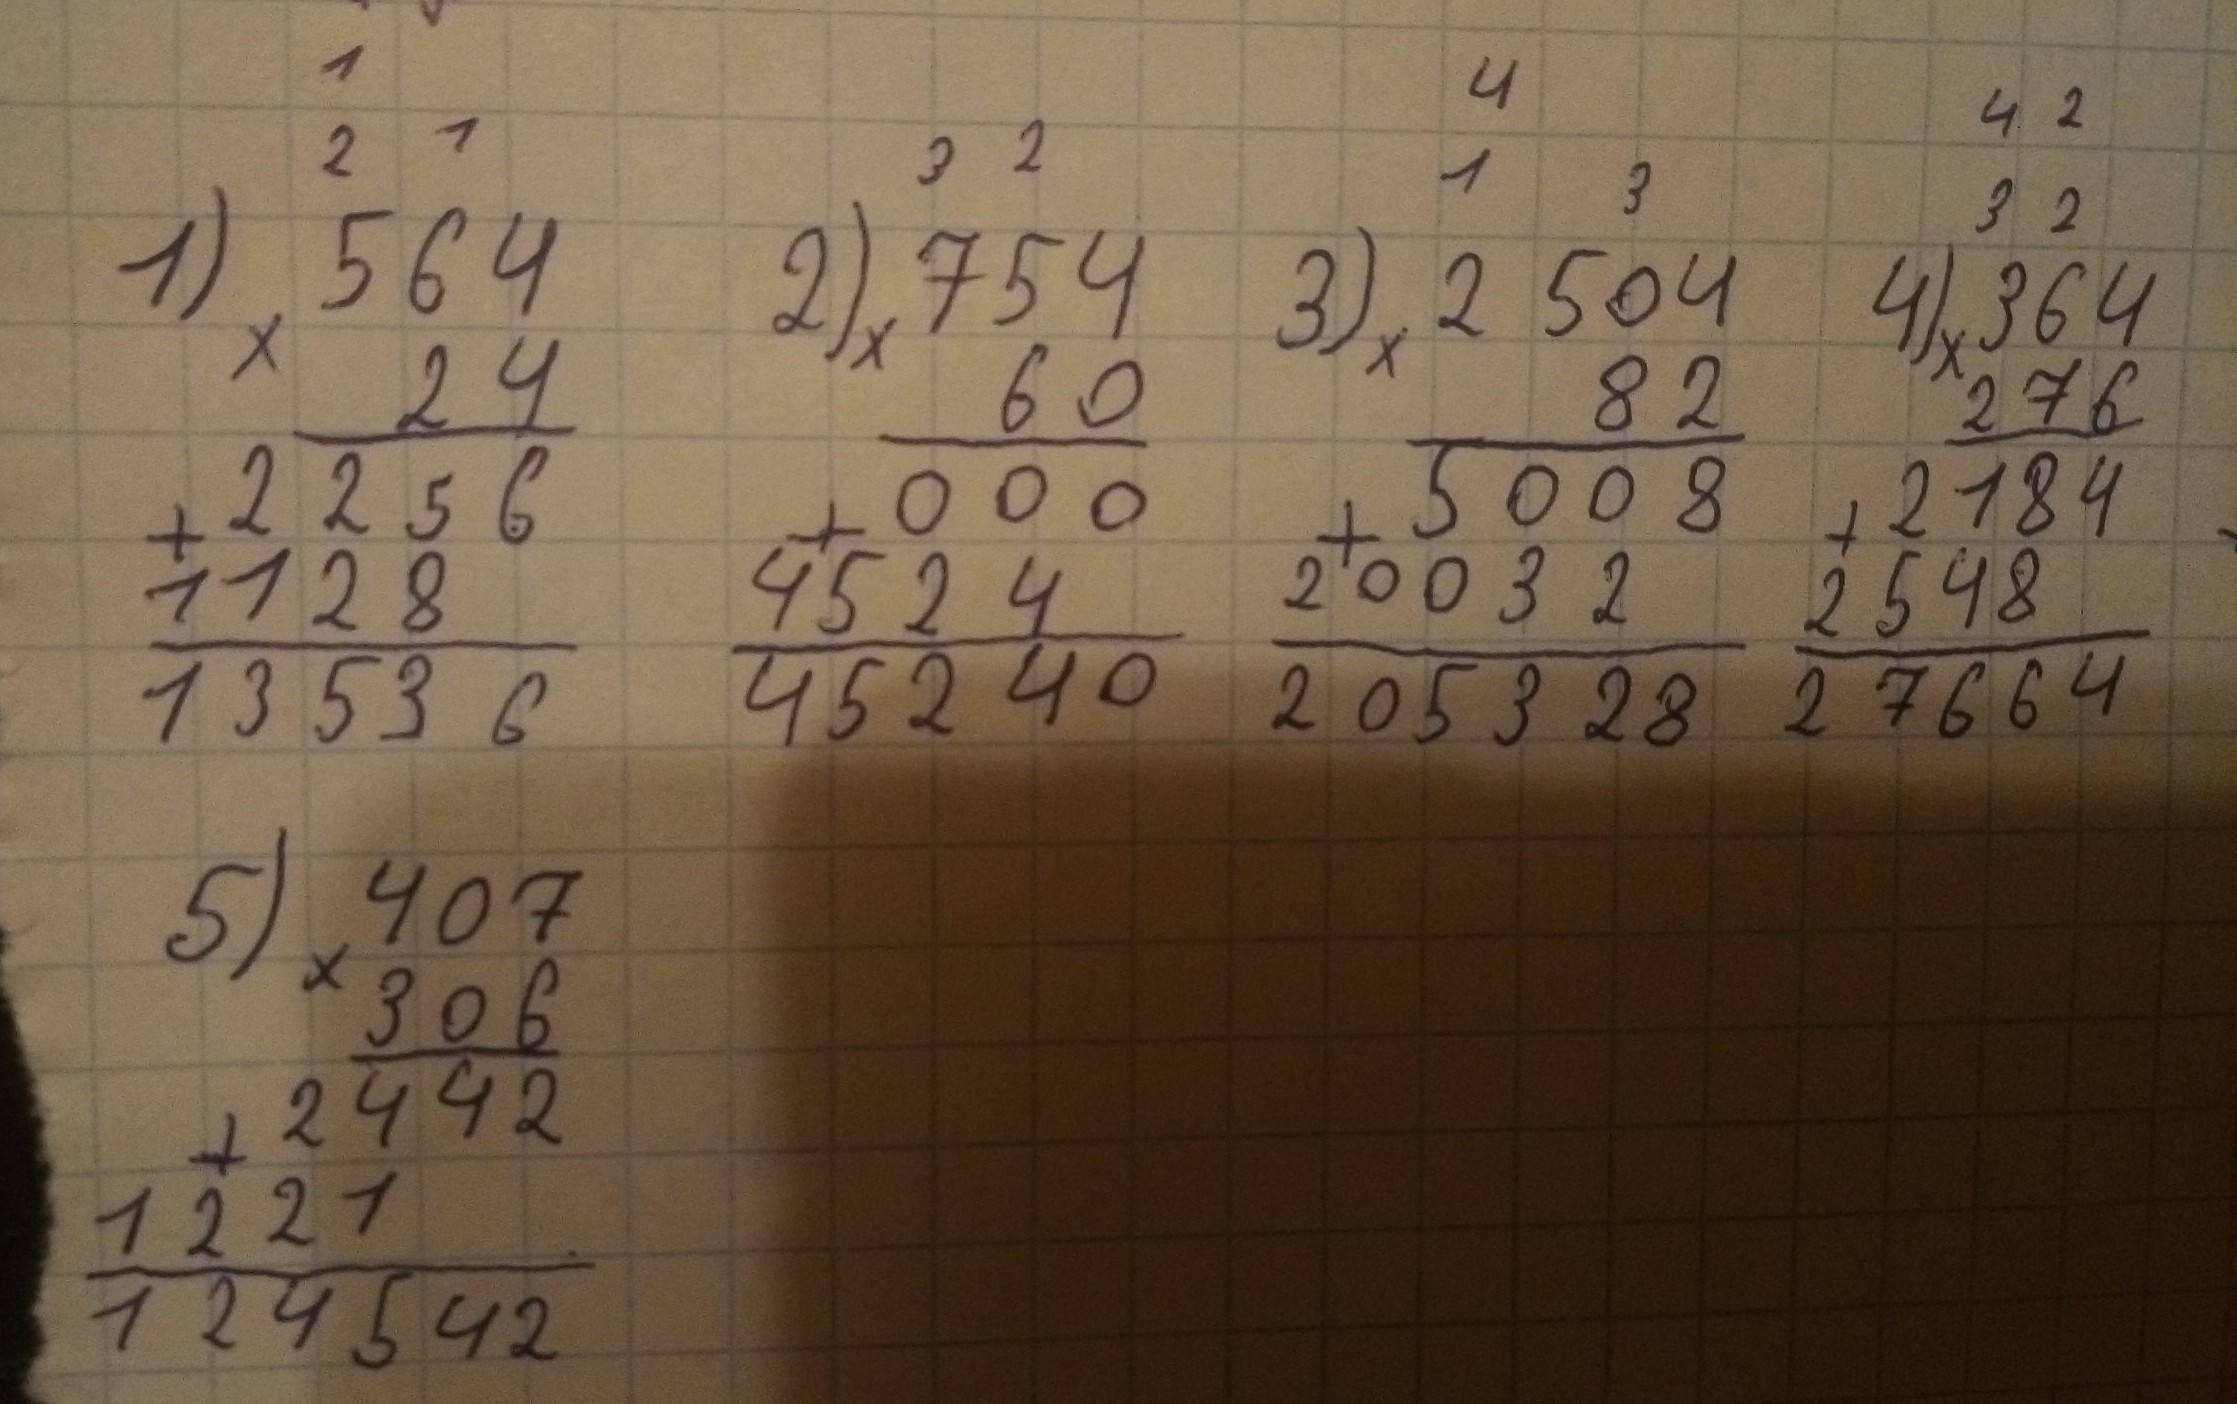 1
2 1
1) 564
x 24
2256
+
1128
13536
3 2
2) x 754
60
+ 000
4524
45240
4
1 3
3) x 2504
82
+ 5008
20032
205328
4 2
3 2
4) x 364
276
+ 2184
2548
27664
5) x 407
306
2442
+
1221
124542